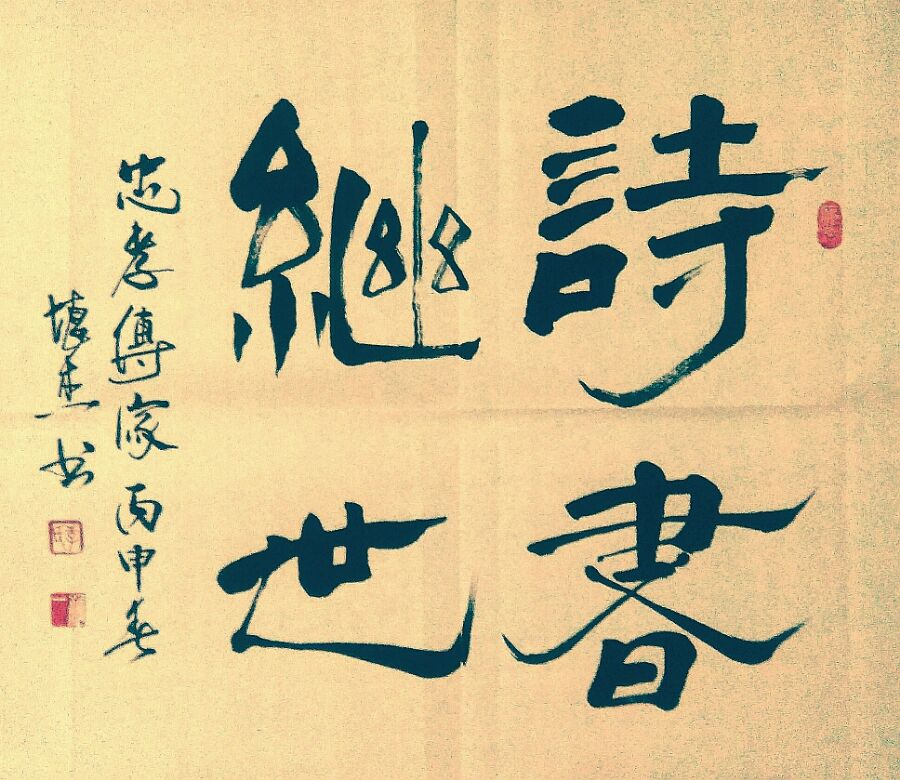 詩書
繼世
忠孝傳家 丙申春
杰书